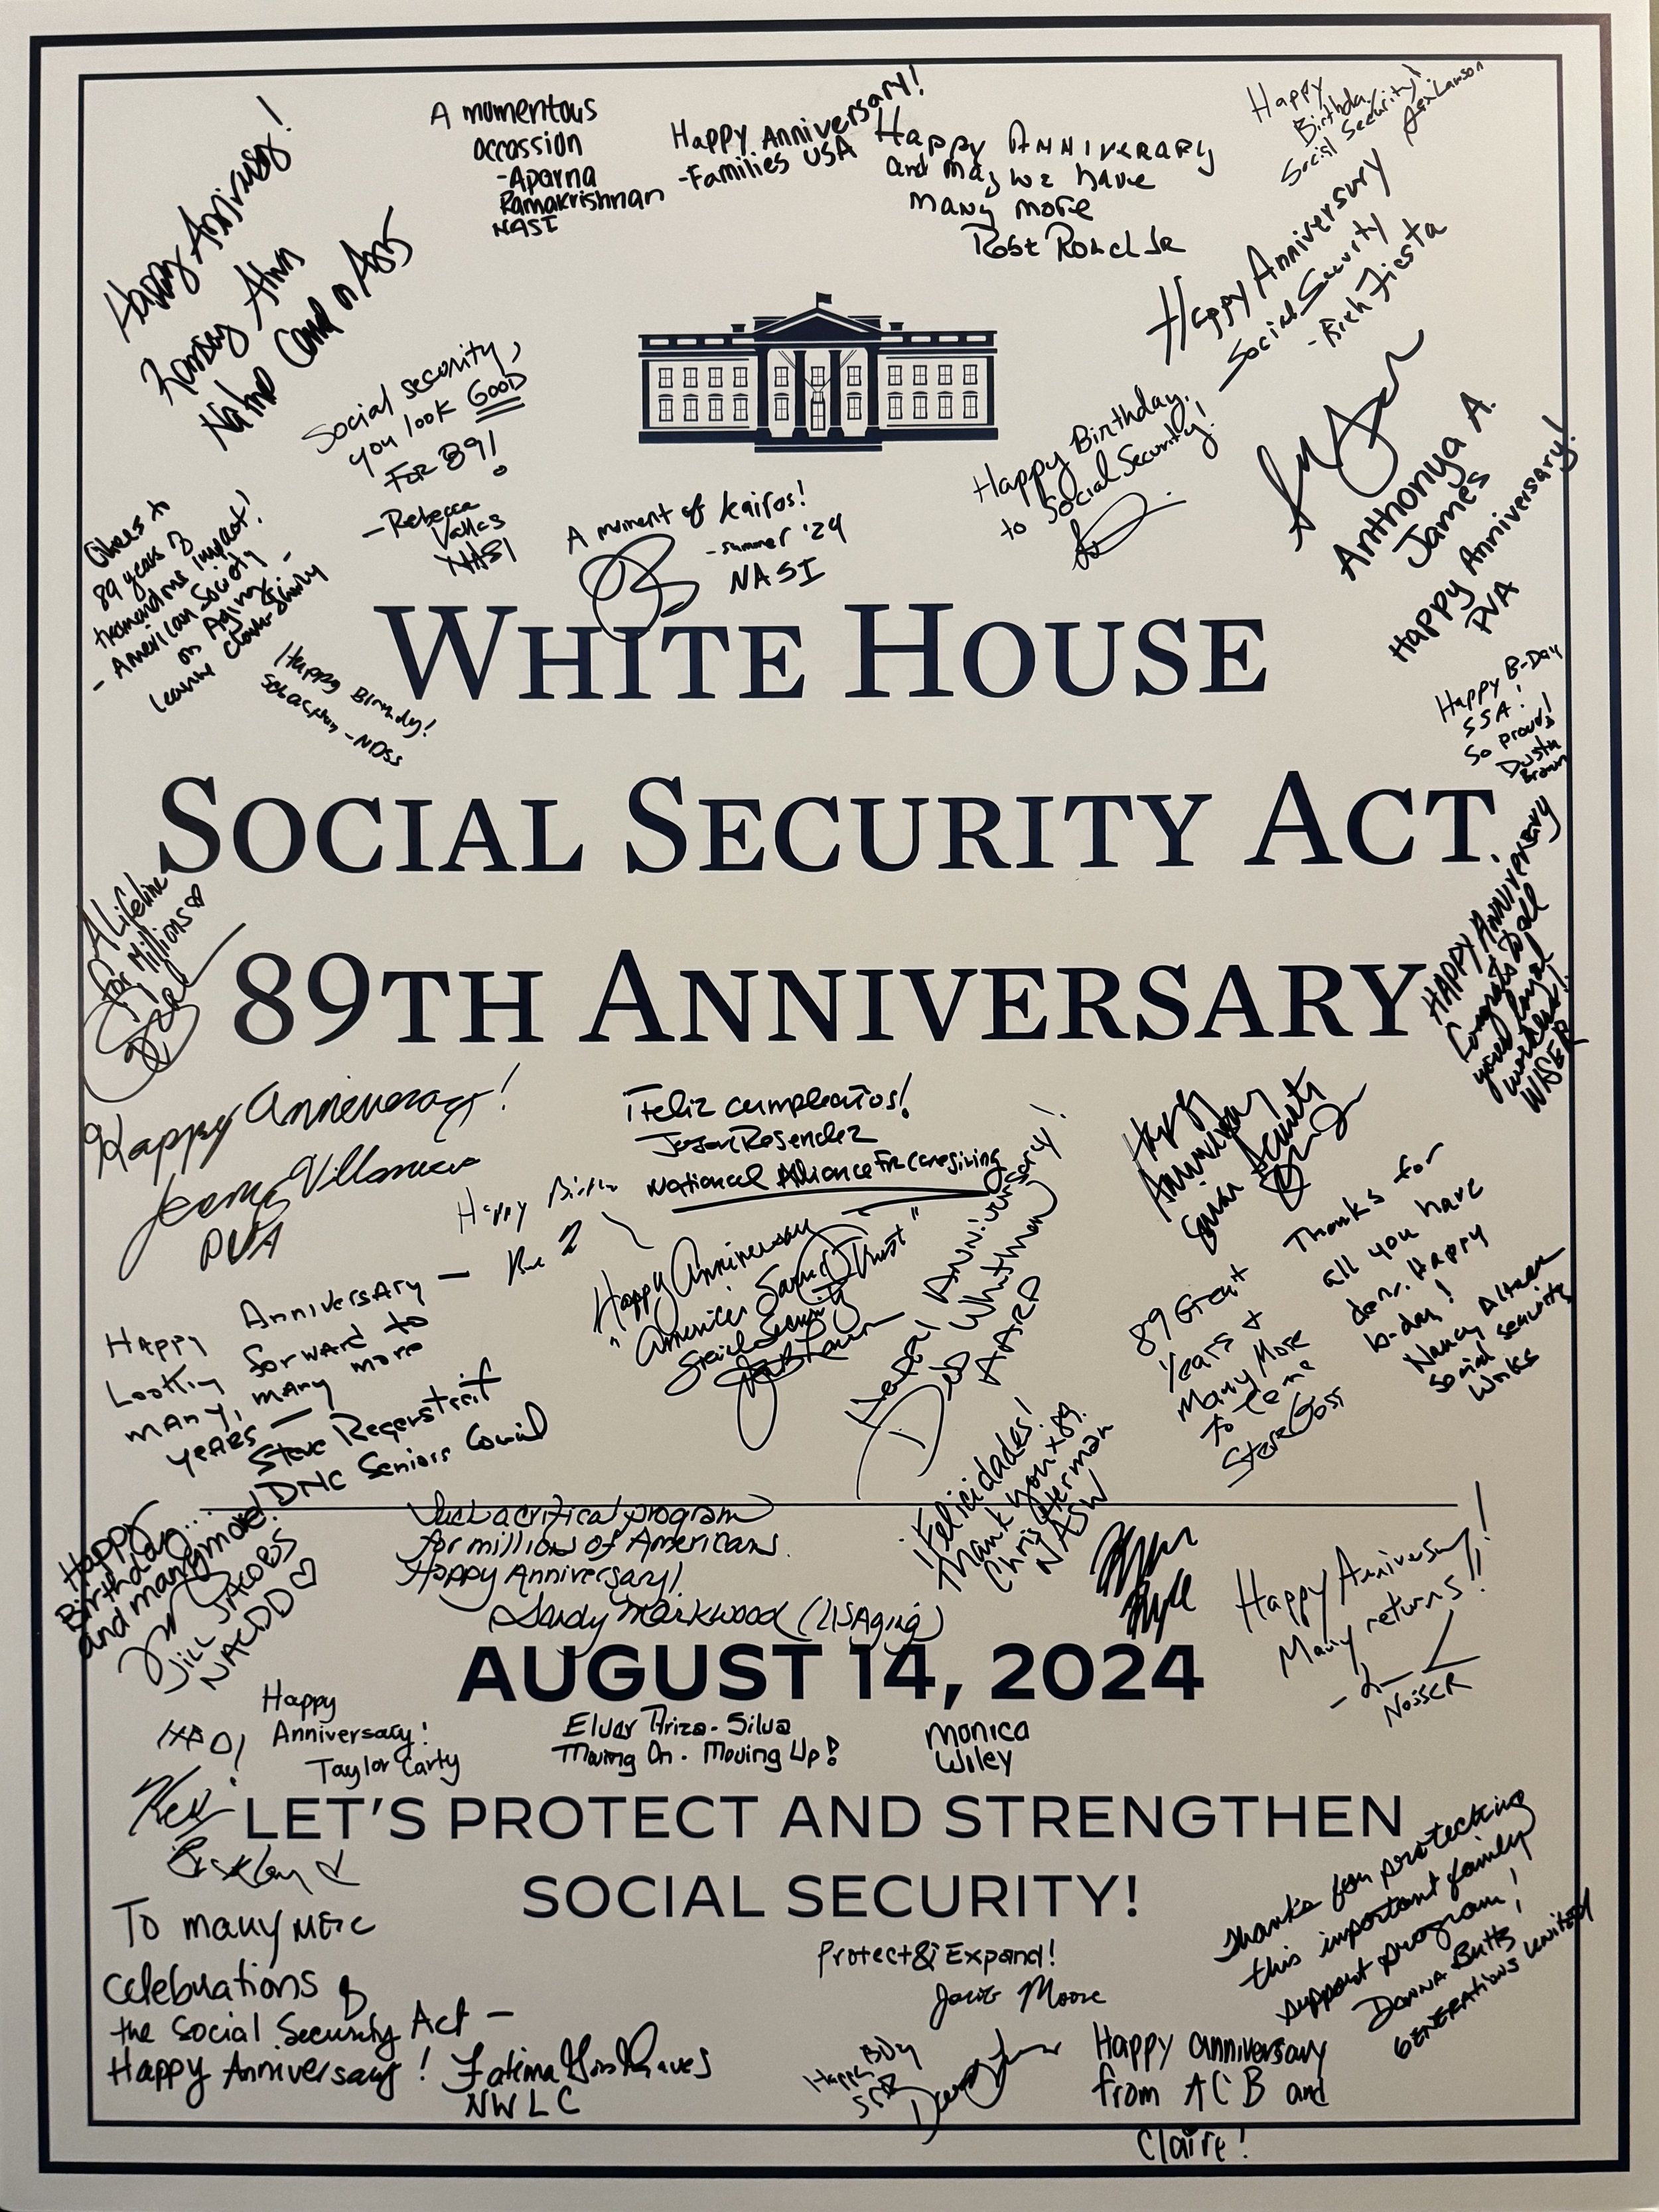 Happy
Ramsey Alwin
A momentous
occassion
-Aparna
Ramakrishnan
NASI
Happy Anniversary!
-Families USA
Happy ANNIVERARY
and may we have
many more
Happy
Birthday
Social Security!
Happy Anniversary
Social Security
-Rich Fiesta
Social security,
you look GOOD
FOR 89!
-Rebecca
Vallas
NASI
A moment of kairos!
-summer '24
NASI
Happy Birthday,
to Social Security!
Anthonya A.
James
Happy Anniversary!
PVA
Cheers to
89 years of
tremendous impact!
-American Society
on Aging-
Leanne Clark-Shirley
Happy
-NDSS
Happy B-Day
SSA!
So proud!
Dustin
Brown
WHITE HOUSE
SOCIAL SECURITY ACT
89TH ANNIVERSARY
A Lifeline
for Millions
HAPPY ANNIVERSARY
Congrats to all
your loyal
WISER
Happy
PVA
¡Feliz cumpleaños!
Jason Resendez
National Alliance for Caregiving
Happy
Happy Anniversary
"America's Sacred Trust"
Social Security
Anniversary!
Deb Whitman
AARP
Happy
Thanks for
all you have
done. Happy
b-day!
Nancy Altman
Social Security
Works
89 Great
Years +
Many More
to Come
Happy Anniversary —
Looking forward to
many, many more
years —
Steve Regenstreif
DNC Seniors Council
¡Felicidades!
Thank you x 89.
Chris Herman
NASW
Happy
Birthday...
and many more!
JILL JACOBS
NACDD ♡
Such a critical program
for millions of Americans.
Happy Anniversary!
Sandy Markwood (USAging)
Happy Anniversary!
Many returns!!
NOSSCR
AUGUST 14, 2024
Happy
Anniversary!
Taylor Carty
Eluar Ariza-Silva
Moving On. Moving Up!
Monica
Wiley
LET'S PROTECT AND STRENGTHEN
SOCIAL SECURITY!
To many more
celebrations of
the Social Security Act —
Happy Anniversary! Fatima Goss Graves
NWLC
Protect & Expand!
Moore
Thanks for protecting
this important family
support program!
Donna Butts
GENERATIONS United
Happy
Happy anniversary
from ACB and
Claire!